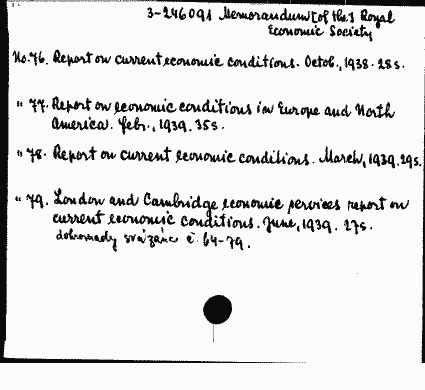 3-246091 Memorandum [of the] Royal
Economic Society
No. 76. Report on current economic conditions. Octob., 1938. 28s.
" 77. Report on economic conditions in Europe and North
America. Febr., 1939. 35s.
" 78. Report on current economic conditions. March, 1939. 29s.
" 79. London and Cambridge economic services report on
current economic conditions. June, 1939. 27s.
dohromady svázáno č. 64-79.